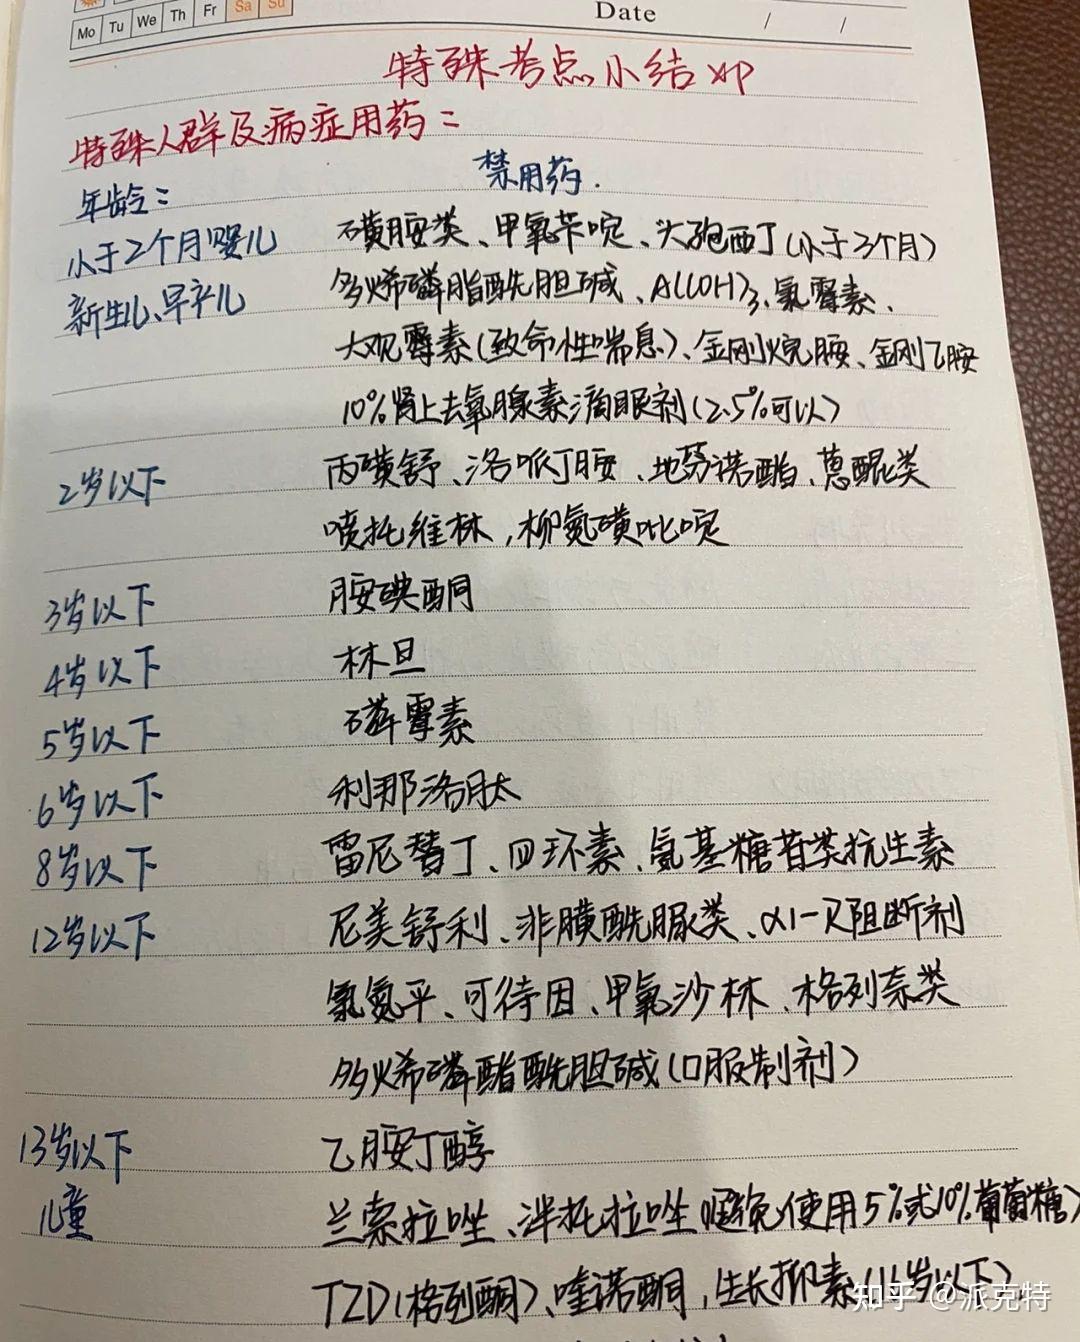 Mo Tu We Th Fr Sa Su
Date / /
特殊考点小结
特殊人群及病症用药:
年龄: 禁用药.
小于2个月婴儿 磺胺类、甲氧苄啶、头孢西丁(小于3个月)
新生儿、早产儿 多烯磷脂酰胆碱、Al(OH)3、氯霉素、
大观霉素(致命性喘息)、金刚烷胺、金刚乙胺
10%肾上去氧腺素滴眼剂(2.5%可以)
2岁以下 丙磺舒、洛哌丁胺、地芬诺酯、蒽醌类
喷托维林,柳氮磺吡啶
3岁以下 胺碘酮
4岁以下 林旦
5岁以下 磷霉素
6岁以下 利那洛肽
8岁以下 雷尼替丁、四环素、氨基糖苷类抗生素
12岁以下 尼美舒利、非磺酰脲类、α1-R阻断剂
氯氮平、可待因、甲氧沙林、格列奈类
多烯磷酯酰胆碱(口服制剂)
13岁以下 乙胺丁醇
儿童 兰索拉唑、泮托拉唑(避免使用5%或10%葡萄糖)
TZD(格列酮)、喹诺酮,生长抑素(16岁以下)
知乎 @派克特